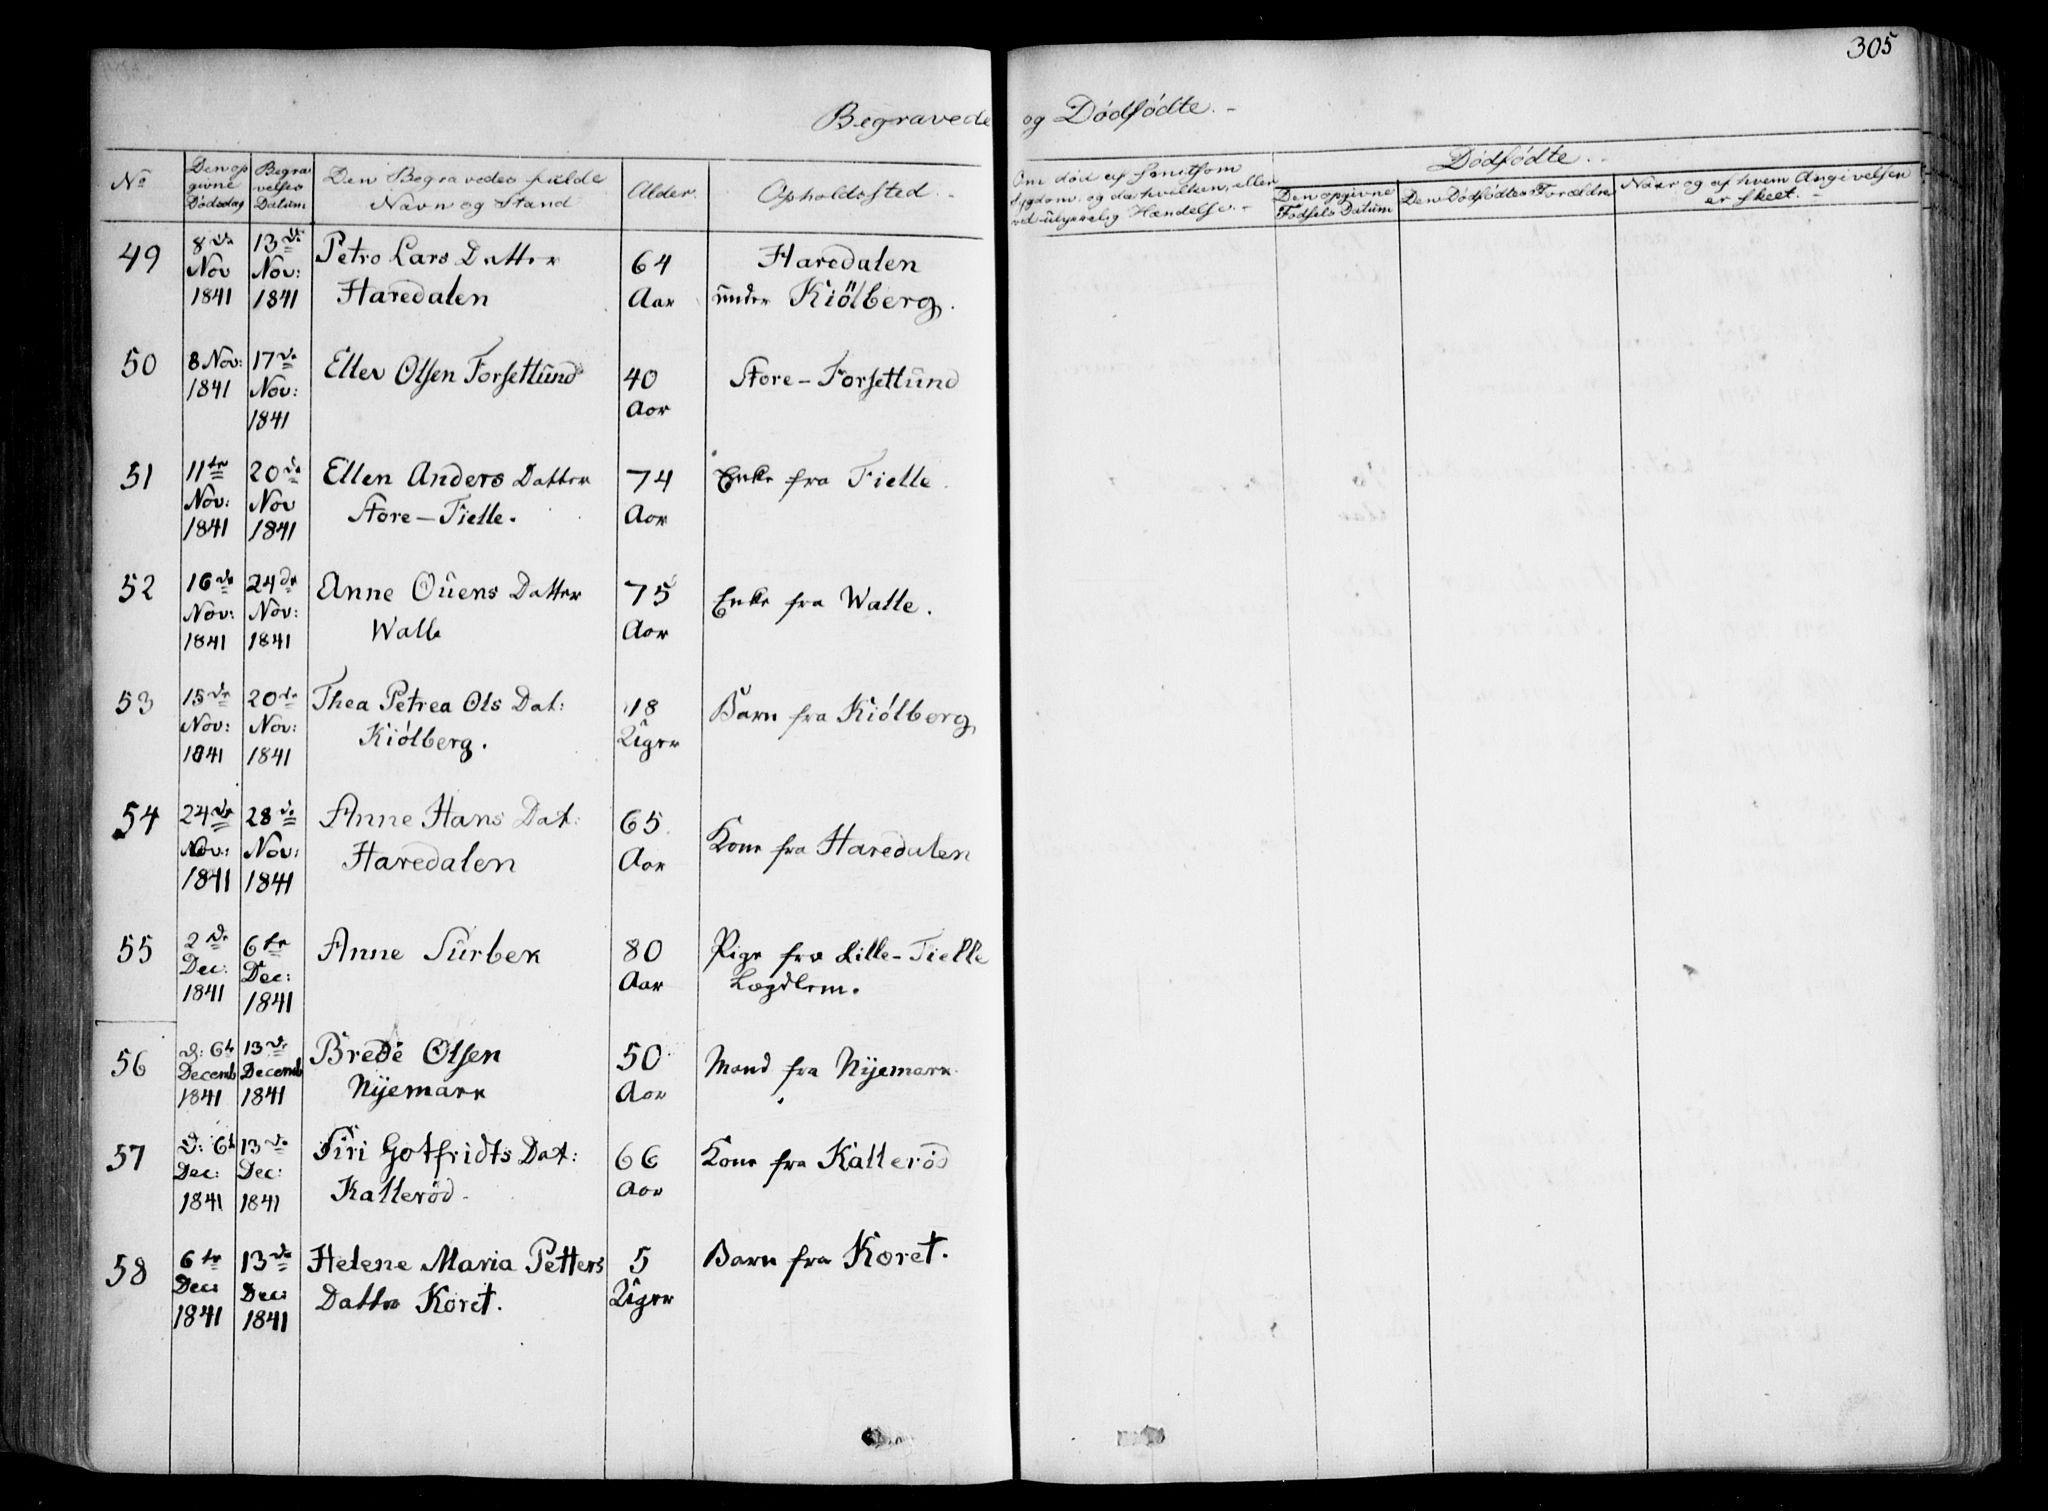 305
Begravede og Dødfødte.
No
Den op
givne
Dødsdag
Begra
velses
Datum
Den Begravedes fulde
Navn og Stand
Alder.
Opholdssted.
Om død af
Sygdom, og da hvilken, eller
ved ulykkelig Hændelse.
Dødfødte.
Den opgivne
Fødsels Datum
Den Dødfødtes Forældre
Naar og af hvem Angivelsen
er skeet.
49 8de 13de Petro Lars Datter 64 Haredalen
Nov Nov: Haredalen Aar under Kiölberg.
1841 1841
50 8 Nov: 17de Ellev Olsen Forsetlund 40 Store-Forsetlund
1841 Nov: Aar
1841
51 11te 20de Ellen Anders Datter 74 Enke fra Tielle.
Nov: Nov Store-Tielle. Aar
1841 1841
52 16de 24de Anne Ouens Datter 75 Enke fra Walle.
Nov: Nov: Walle Aar
1841 1841
53 15de 20de Thea Petrea Ols Dat: 18 Barn fra Kiólberg
Nov: Nov: Kiólberg. Uger
1841 1841
54 24de 28de Anne Hans Dat: 65. Kone fra Haredalen
Nov: Nov: Haredalen Aar
1841 1841
55 2de 6te Anne Surbek 80 Pige fra Lille-Tielle
Dec: Dec: Aar Lægdlem.
1841 1841
56 D: 6t 13de Brede Olsen 50 Mand fra Nÿemark
Decemb Decemb Nÿemark Aar
1841 1841
57 D: 6t 13de Siri Gotfridts Dat: 66 Kone fra Kallerød
Dec: Dec: Kallerød. Aar
1841 1841
58 6te 13de Helene Maria Petters 5 Barn fra Koret.
Dec: Dec: Datter Koret. Uger
1841 1841